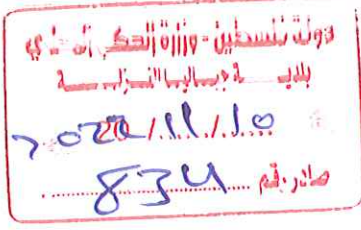 دولة فلسطين - وزارة الحكم المحلي
بلدية جباليا النزلة
2022/11/10
صادر رقم 834